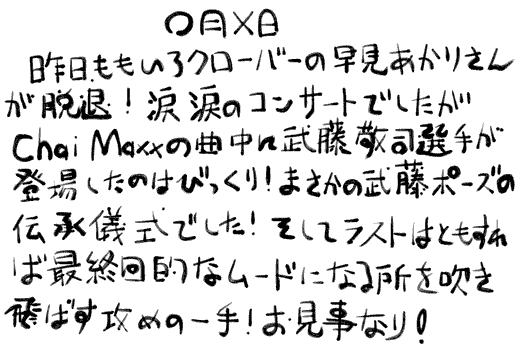 〇月×日
昨日ももいろクローバーの早見あかりさん
が脱退!涙涙のコンサートでしたが
Chai Maxxの曲中に武藤敬司選手が
登場したのはびっくり!まさかの武藤ポーズの
伝承儀式でした!そしてラストはともすれ
ば最終回的なムードになる所を吹き
飛ばす攻めの一手!お見事なり!